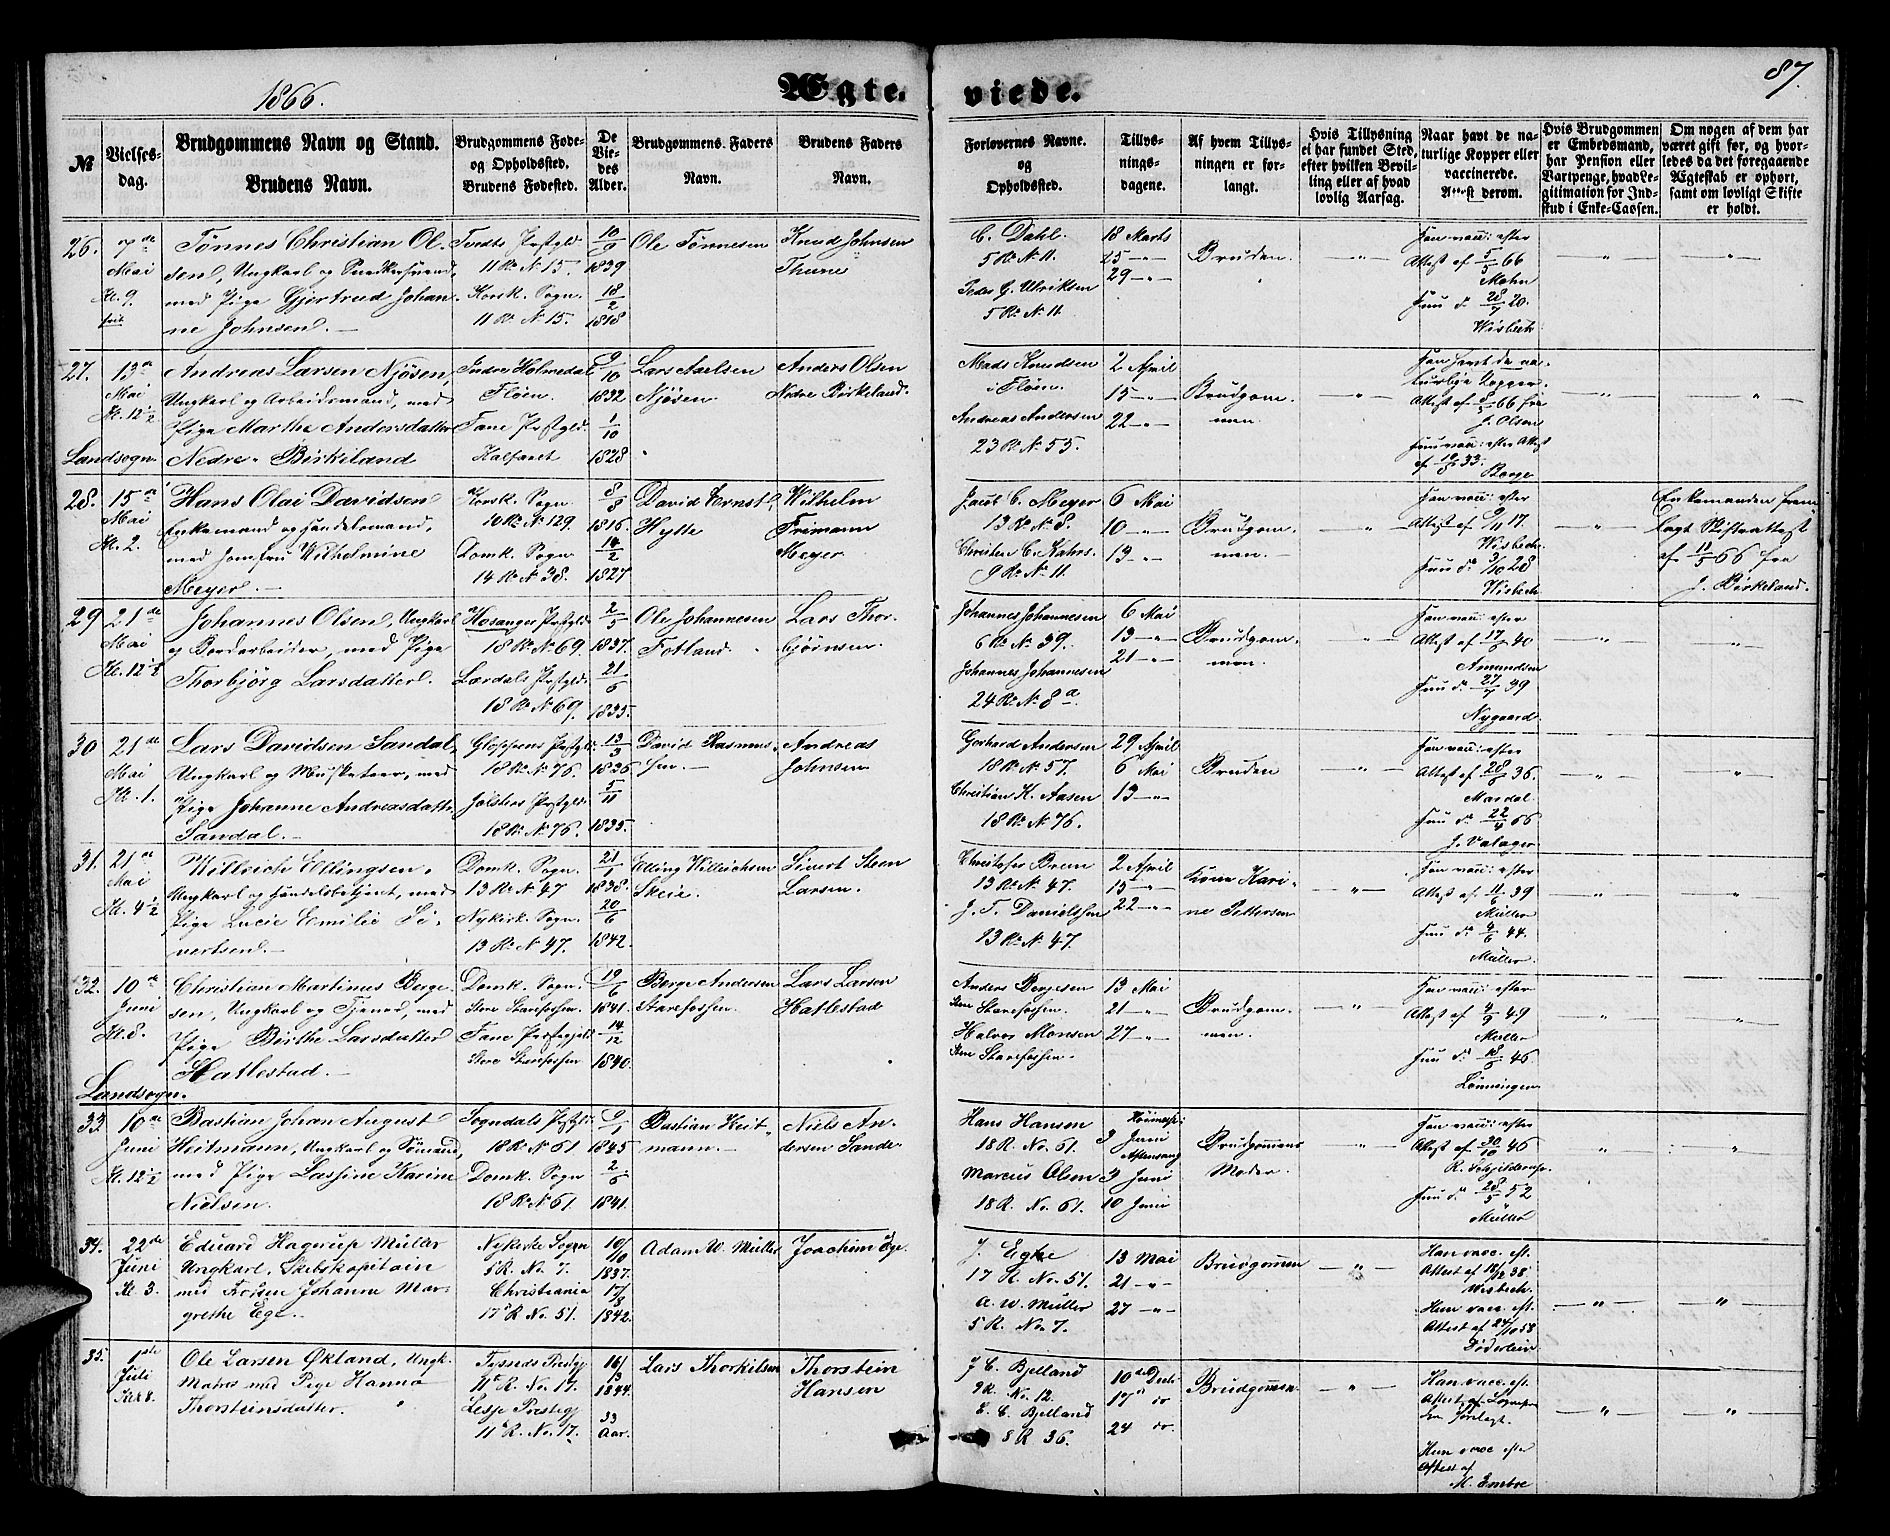 1866.
Ægte.
viede.
87.
№
Vielses-
dag.
Brudgommens Navn og Stand.
Brudens Navn.
Brudgommens Føde-
og Opholdssted.
Brudens Fødested.
De
Vie-
des
Alder.
Brudgommens Faders
Navn.
Brudens Faders
Navn.
Forlovernes Navne.
og
Opholdssted.
Tillys-
nings-
dagene.
Af hvem Tillys-
ningen er for-
langt.
Hvis Tillysning
ei har fundet Sted,
efter hvilken Bevil-
ling eller af hvad
lovlig Aarsag.
Naar havt de na-
turlige Kopper eller
vaccinerede.
Attest derom.
Hvis Brudgommen
er Embedsmand,
har Pension eller
Vartpenge, hvad Le-
gitimation for Ind-
skud i Enke-Cassen.
Om nogen af dem har
været gift før, og hvor-
ledes da det foregaaende
Ægteskab er ophørt,
samt om lovligt Skifte
er holdt.
26.
7de
Mai
Kl. 9
Tønnes Christian Ol-
sen, Ungkarl og Snedkersvend,
med Pige Gjertrud Johan-
ne Johnsen.
Tvedts Prstgld.
11 R. N 15.
Korsk. Sogn.
11 R. N 15.
10/9
1839
18/2
1818
Ole Tønnesen
Knud Johnsen
Thune
C. Dahl.
5 R. N 11.
Peder G. Ulriksen
5 R. N 11.
18 Marts
25 — „ —
29 — „ —
Bruden.
Han vacc: efter
Attest af 5/5 66
Mohn
Hun do 28/7 20.
Wisbech
27.
13de
Mai
Kl. 12½
Landsogn
Andreas Larsen Njøsen,
Ungkarl og Arbeidsmand, med
Pige Marthe Andersdatter
Nedre-Birkeland
Indre Holmedal
Fløen.
Fane Prstgld.
Kalfaret
9/10
1832
1/10
1828
Lars Axelsen
Njøsen.
Anders Olsen
Nedre Birkeland.
Mads Knudsen
i Fløen.
Andreas Andersen
23 R. N. 55.
2 April
15 — „ —
22 — „ —
Brudgom-
men.
Han havt de na-
turlige Kopper.
Attest af 8/5 66 fra
J. Olsen
Hun vacc: efter Attest
af 10/8 33.
28.
15de
Mai
Kl. 2.
Hans Olai Davidsen
Enkemand og Handelsmand,
med Jomfru Wilhelmine
Meyer.
Korsk. Sogn
10 R. N. 129.
Domk. Sogn
14 R. N. 38.
1816.
14/2
1827
David Ernst
Hytte
Wilhelm
Frimann
Meyer
Jacob C. Meyer
13 R. N. 8.
Christen C. Kahrs.
9 R. N. 11.
6 Mai
10 — „ —
13 — „ —
Brudgom-
men.
Han vacc: efter
Attest af 9/11 17.
Wisbech.
Hun do 3/10 28
Wisbech
Enkemanden frem-
lagt Skifteattest
af 12/5 66 fra
J. Birkeland.
29
21de
Mai
Kl. 12½
Johannes Olsen, Ungkarl
og Bordarbeider, med Pige
Thorbjørg Larsdatter.
Hosanger Prstgld.
18 R. N 69.
Lærdals Prstgld.
18 R. N 69.
2/5
1837.
21/6
1835.
Ole Johannesen
Fotland.
Lars Thor-
bjørnsen.
Johannes Johannesen
6 R. N. 39.
Johannes Johannesen
24 R. N. 8 a.
6 Mai
13 — „ —
21 — „ —
Brudgom-
men.
Han vacc: efter
Amundsen
Hun do 27/7 39
Nygaard.
30
21de
Mai
Kl. 1.
Lars Davidsen Sandal,
Ungkarl og Musketeer, med
Pige Johanne Andreasdatter
Sandal.
Gloppens Prstgld.
18 R. N. 76.
Jølsters Prstgld.
18 R. N. 76.
13/3
1836
5/11
1835.
David Rasmus-
sen.
Andreas
Johnsen
Gerhard Andersen
18 R. N. 57.
Christian H. Aasen
18 R. N. 76.
29 April
6 Mai
13 — „ —
Bruden
Han vacc: efter
Attest af 28/6 36.
Mardal.
Hun do 22/4 66
31.
21de
Mai
Kl. 4½
Willrich Ellingsen.
Ungkarl og Handelsbetjent, med
Pige Lucie Emilie Si-
vertsen.
Domk. Sogn.
13 R. N. 47
Nykirk. Sogn.
13 R. N. 47.
21/1
1838.
20/6
1842.
Elling Willrichsen
Skeie.
Sivert Steen
Larsen.
Christofer Brun
13 R. N. 47.
J. T. Danielsen
13 R. N. 47.
2 April
15 — „ —
22 — „ —
Kone Kari-
ne Pettersen
Han vacc: efter
Attest af 11/6 39
Müller
Hun do 9/6 44.
Müller.
32.
10de
Juni
Kl. 8.
Landsogn.
Christian Martinus Berge-
sen, Ungkarl og Tjener, med
Pige Birthe Larsdatter
Hatlestad.
Domk. Sogn.
Store Starefossen.
Fane Prstgjeld.
Store Starefossen
19/6
1841.
14/12
1840.
Berge Andersen
Starefossen.
Lars Larsen
Hatlestad
Anders Bergesen
Store Starefossen.
Halvor Monsen
Store Starefossen.
13 Mai
21 — „ —
27 — „ —
Brudgom-
men.
Han vacc: efter
Attest af 4/9 49
Müller
Hun do 18/6 46
Lønningen
33.
10de
Juni
Kl. 12½
Bastian Johan August
Heitmann, Ungkarl og Sømand,
med Pige Lassine Karine
Nielsen.
Sogndals Prstgld.
18 R. N 61
Domk. Sogn
18 R. N 61.
9/1
1845
2/6
1841.
Bastian Heit-
mann.
Niels An-
dersen Sande
Hans Hansen
18 R. No. 61.
Marcus Olsen
18 R. No. 61.
Høimesse
3 Juni
Aftensang
3 Juni
10 Juni
Brudgommens
Moder.
Han vacc: efter
Attest af 30/10 46
Hun do 28/5 52
Müller
34.
22de
Juni
Kl. 3.
Eduard Hagerup Müller
Ungkarl, Skibskapitain
med Frøken Johanne Mar-
grethe Ege.
Nykirke Sogn
5 R. No. 7.
Christiania
17 R. No. 51.
10/10
1837.
17/3
1842.
Adam W. Müller
Joachim Ege.
J. Egke
17 R. No. 51.
A. W. Müller
5 R. No. 7.
13 Mai
21 „ „
27 „ „
Brudgommen
Han vacc. eft.
Attest af 18/12 38
Wisbech.
Hun vacc. eft.
Attest af 24/10 58
Döderlein
35.
1ste
Juli
Kl 8.
Ole Larsen Økland, Ungk.
Matros med Pige Hanna
Thorsteinsdatter.
Tysnes Prestgj.
11 R. No. 17.
Lesje Prestegj
11 R. No. 17.
16/3
1844.
33
Aar.
Lars Thorkilsen
Thorstein
Hansen
J. C. Bjelland
9 R. No. 12.
E. C. Bjelland
8 R 36.
10de Decbr.
17 do
24 do.
Brudgommen
Han vacc. eft.
Attest af
Hun vacc efter
Attest af
M. Embre